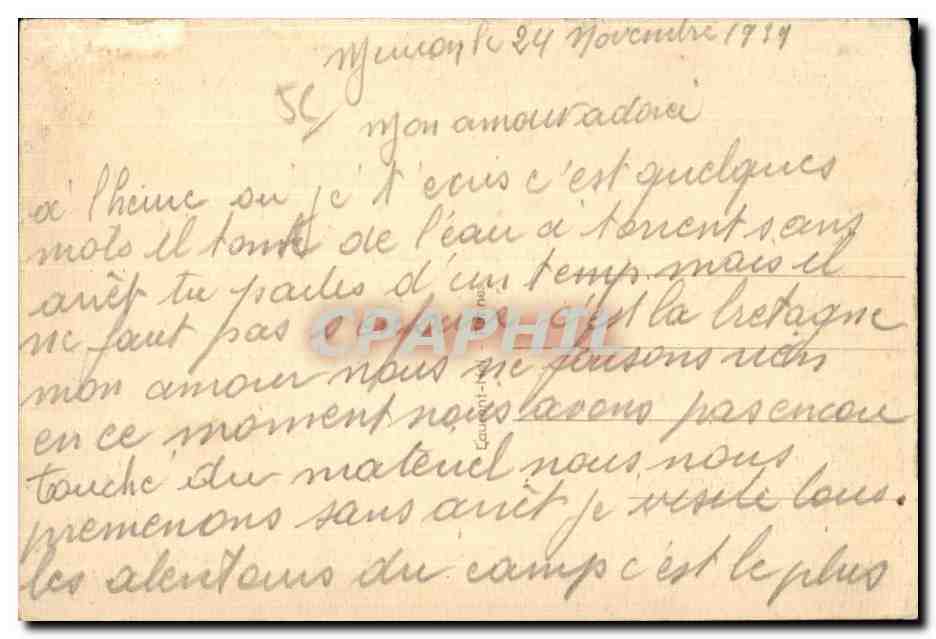 le 24 Novembre 1939
Mon amour adoré
à l'heure où je t'écris c'est quelques
mots il tombe de de l'eau à torrent sans
arrêt tu parles d'un temp. mais il
ne faut pas c'est la bretagne
mon amour nous ne faisons rien
en ce moment nous avons pas encore
touché du matériel nous nous
premenons sans arrêt je visite tous.
les alentours du camp c'est le plus
CPAPHIL
Laurent-Nel
nnes